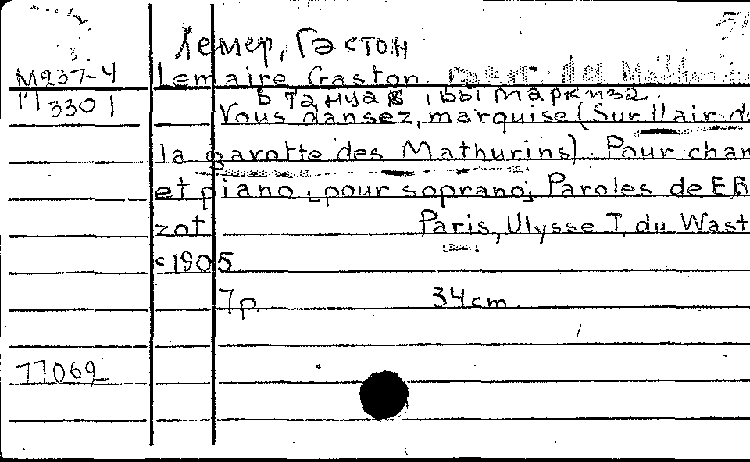 Лемер, Гастон
M237-4
Lemaire Gaston.
M 3301
Vous dansez, marquise (Sur l'air d
la gavotte des Mathurins). Pour chan
et piano [pour soprano] Paroles de
zot Paris, Ulysse T. du Wast
c1905
7p. 34cm.
77069